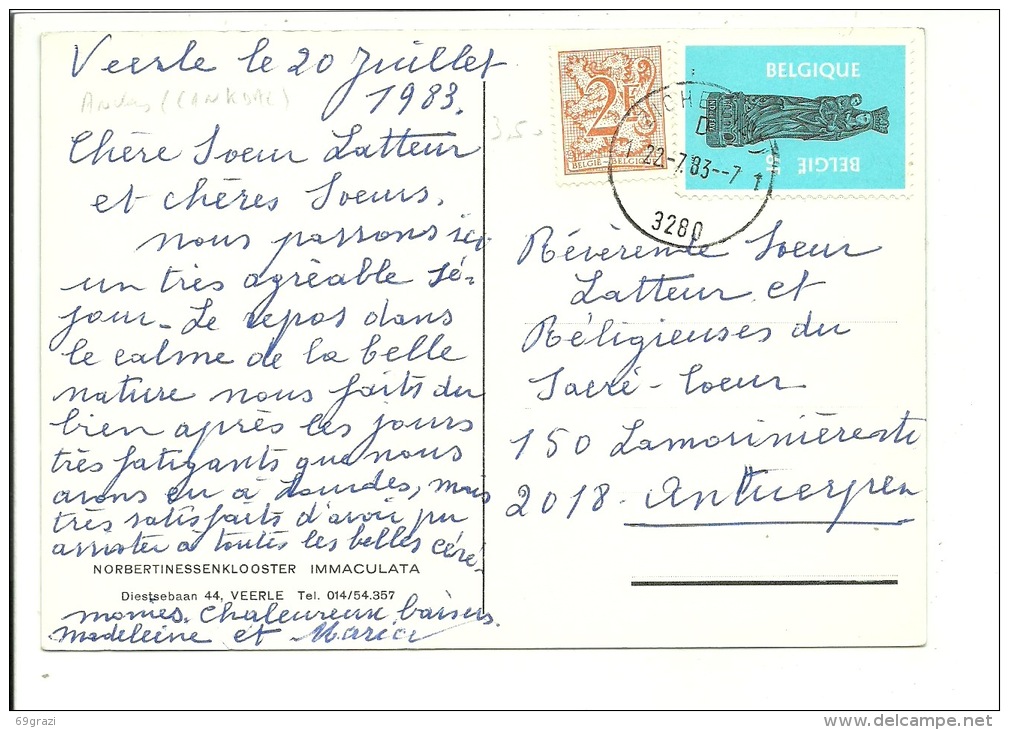 Veerle le 20 Juillet
1983.
Chère Soeur Latteur
et chères Soeurs.
Nous passons ici
un très agréable sé-
jour - Le repos dans
le calme de la belle
nature nous faits du
bien après les jours
très fatigants que nous
avons eu à Lourdes, mais
très satisfaits d'avoir pu
assister à toutes les belles céré-
NORBERTINESSENKLOOSTER IMMACULATA
Diestsebaan 44, VEERLE Tel. 014/54.357
monies. Chaleureux baisers.
Madeleine et Maria
35.-
2F
BELGIË-BELGIQUE
BELGIQUE
BELGIË
22-7.83--7
3280
Révérende Soeur
Latteur et
Réligieuses du
Sacré-Coeur
150 Lamorinièrestr
2018 - Antwerpen
69grazi
delcampe.net